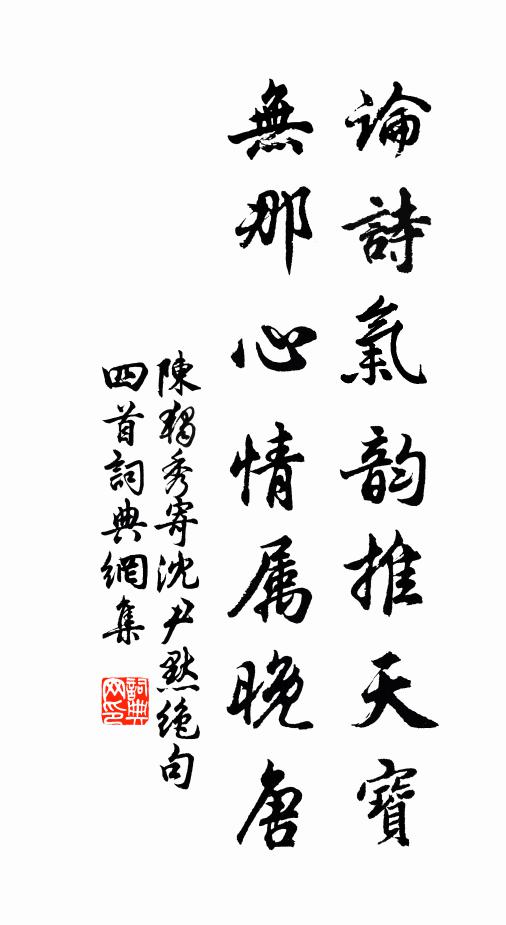 論詩氣韵推天寶
無那心情属晚唐
陳獨秀寄沈尹默絶句
四首詞典網集
詞典网印